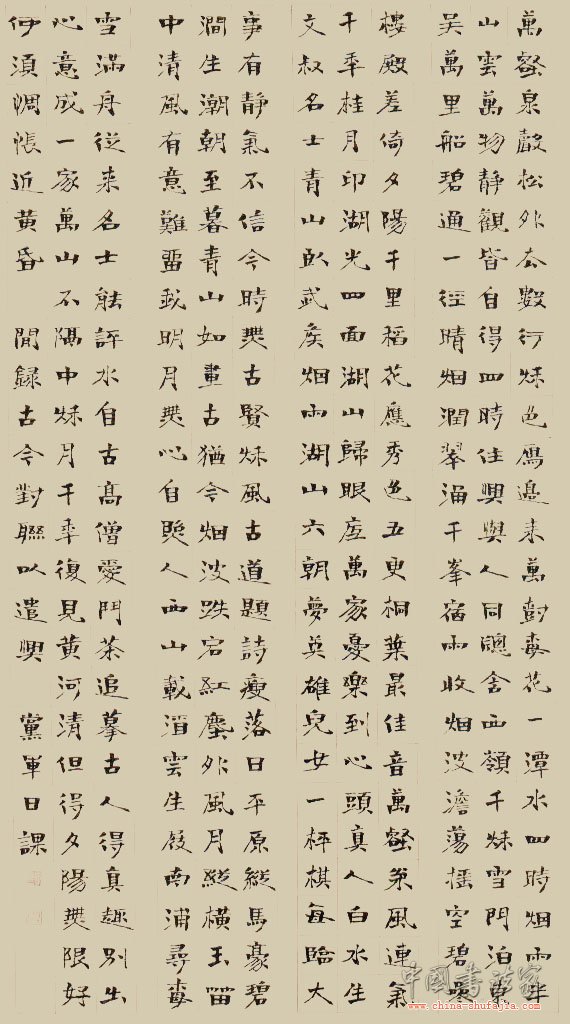 萬壑泉聲松外去數行秌色雁邊来萬樹梅花一潭水四時烟雨半
山雲萬物静觀皆自得四時佳興與人同牕含西嶺千秌雪門泊東
吴萬里船碧通一徑晴烟潤翠涌千峯宿雨收烟波澹蕩摇空碧
樓殿差倚夕陽千里稻花應秀色五更桐葉最佳音萬壑枀風連氣
千年桂月印湖光四面湖山歸眼底萬家憂樂到心頭真人白水生
文叔名士青山卧武侯烟雨湖山六朝夢英雄兒女一枰棋每臨大
事有静氣不信今時無古賢秌風古道題詩瘦落日平原縱馬豪碧
澗生潮朝至暮青山如畫古猶今烟波跌宕紅塵外風月縱横玉留
中清風有意難留我明月無心自照人西山載酒雲生屐南浦尋梅
雪滿舟從来名士能評水自古高僧愛鬥茶追摹古人得真趣别出
心意成一家萬山不隔中秌月千年復見黄河清但得夕陽無限好
何須惆悵近黄昏 閒録古今對聯以遣興 黨軍日課
中國書法家
www.china-shufajia.com